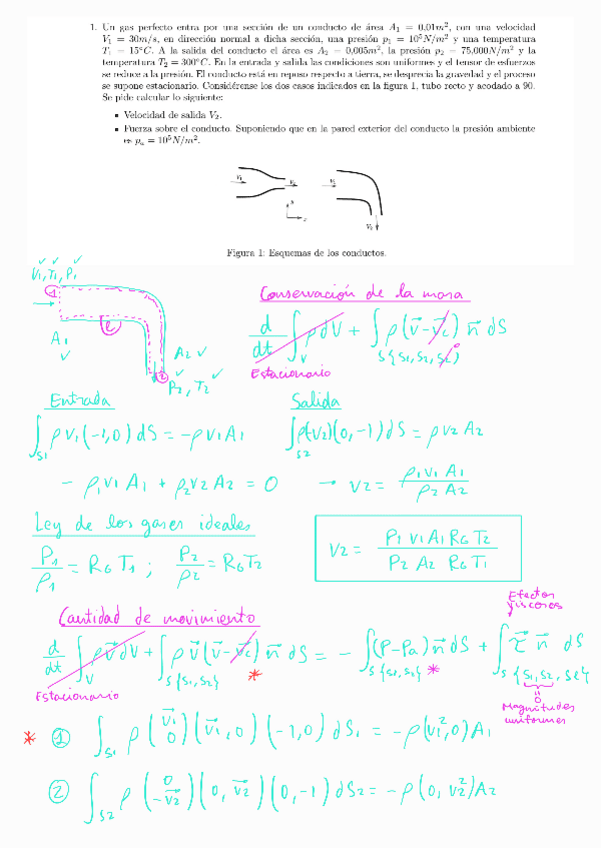 1. Un gas perfecto entra por una sección de un conducto de área A₁ = 0,01m², con una velocidad
V₁ = 30m/s, en dirección normal a dicha sección, una presión p₁ = 10⁵N/m² y una temperatura
T₁ = 15°C. A la salida del conducto el área es A₂ = 0,005m², la presión p₂ = 75,000N/m² y la
temperatura T₂ = 300°C. En la entrada y salida las condiciones son uniformes y el tensor de esfuerzos
se reduce a la presión. El conducto está en reposo respecto a tierra, se desprecia la gravedad y el proceso
se supone estacionario. Considérense los dos casos indicados en la figura 1, tubo recto y acodado a 90.
Se pide calcular lo siguiente:
▪ Velocidad de salida V₂.
▪ Fuerza sobre el conducto. Suponiendo que en la pared exterior del conducto la presión ambiente
es pₐ = 10⁵N/m².
V₁ V₂ V₁
V₂
Figura 1: Esquemas de los conductos.
V₁, T₁, P₁
1
Conservación de la masa
d/dt ∫_V ρdV + ∫_{S{S₁,S₂,Sℓ}} ρ(v⃗-v⃗c) n⃗ dS
Estacionario
A₁
ℓ
A₂
2
P₂, T₂
Entrada Salida
∫_{S1} ρ v₁(-1,0) dS = -ρ v₁A₁ ∫_{S2} ρ(v₂)(0,-1)dS = ρ v₂ A₂
- ρ₁v₁ A₁ + ρ₂v₂ A₂ = 0 → v₂ = ρ₁ v₁ A₁ / ρ₂ A₂
Ley de los gases ideales
P₁/ρ₁ = R_G T₁ ; P₂/ρ₂ = R_G T₂
v₂ = P₁ v₁ A₁ R_G T₂ / P₂ A₂ R_G T₁
Efectos
viscosos
Cantidad de movimiento
d/dt ∫_V ρv⃗dV + ∫_{S{S1,S2}} ρ v⃗(v⃗-v⃗c) n⃗ dS = - ∫_{S{S1,S2}} (P-Pa) n⃗ dS + ∫_{S{S1,S2,Sℓ}} τ⃗ n⃗ dS
* *
Estacionario
0
Magnitudes
uniformes
* ① ∫_{S1} ρ (v⃗₁ 0)(v⃗₁,0)(-1,0) dS₁ = -ρ(v₁²,0)A₁
② ∫_{S2} ρ (0 -v⃗₂)(0, v⃗₂)(0,-1) dS₂ = -ρ(0, v₂²)A₂